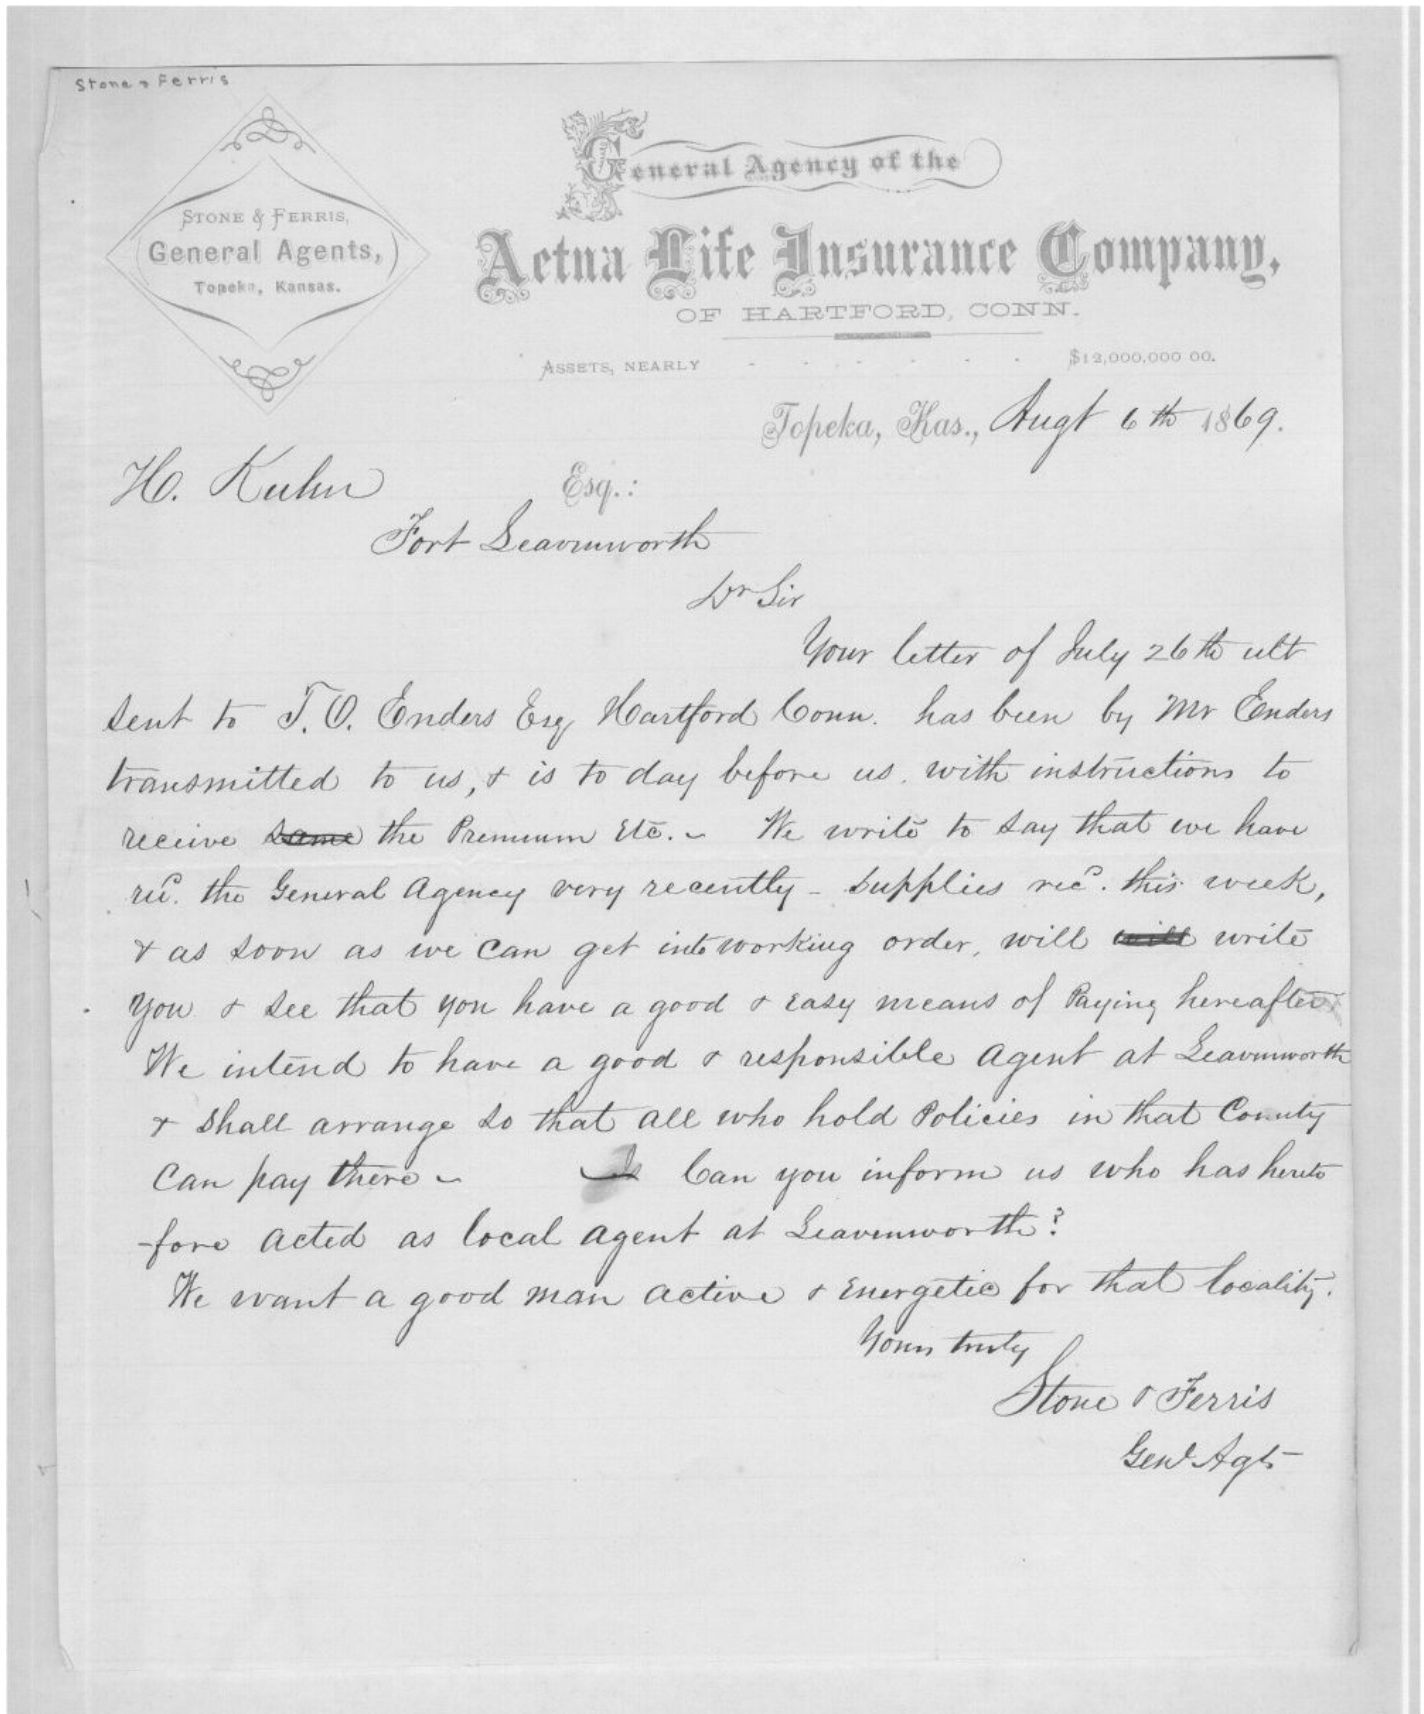 Stone & Ferris
STONE & FERRIS,
General Agents,
Topeka, Kansas.
General Agency of the
Aetna Life Insurance Company,
OF HARTFORD, CONN.
ASSETS, NEARLY - - - - - - $12,000,000 00.
Topeka, Kas., Augt 6th 1869.
H. Kuhn Esq.:
Fort Leavenworth
Dr Sir
Your letter of July 26th ult
sent to T. O. Enders Esq Hartford Conn. has been by Mr Enders
transmitted to us, & is to day before us. with instructions to
receive same the Premium Etc. - We write to say that we have
recd. the General Agency very recently - supplies recd. this week,
& as soon as we can get into working order, will will write
you & see that you have a good & easy means of Paying hereafter
We intend to have a good & responsible Agent at Leavenworth
& shall arrange so that all who hold Policies in that County
can pay there - Is Can you inform us who has hereto
-fore acted as local agent at Leavenworth?
We want a good man active & Energetic for that locality.
Yours truly
Stone & Ferris
Genl Agts